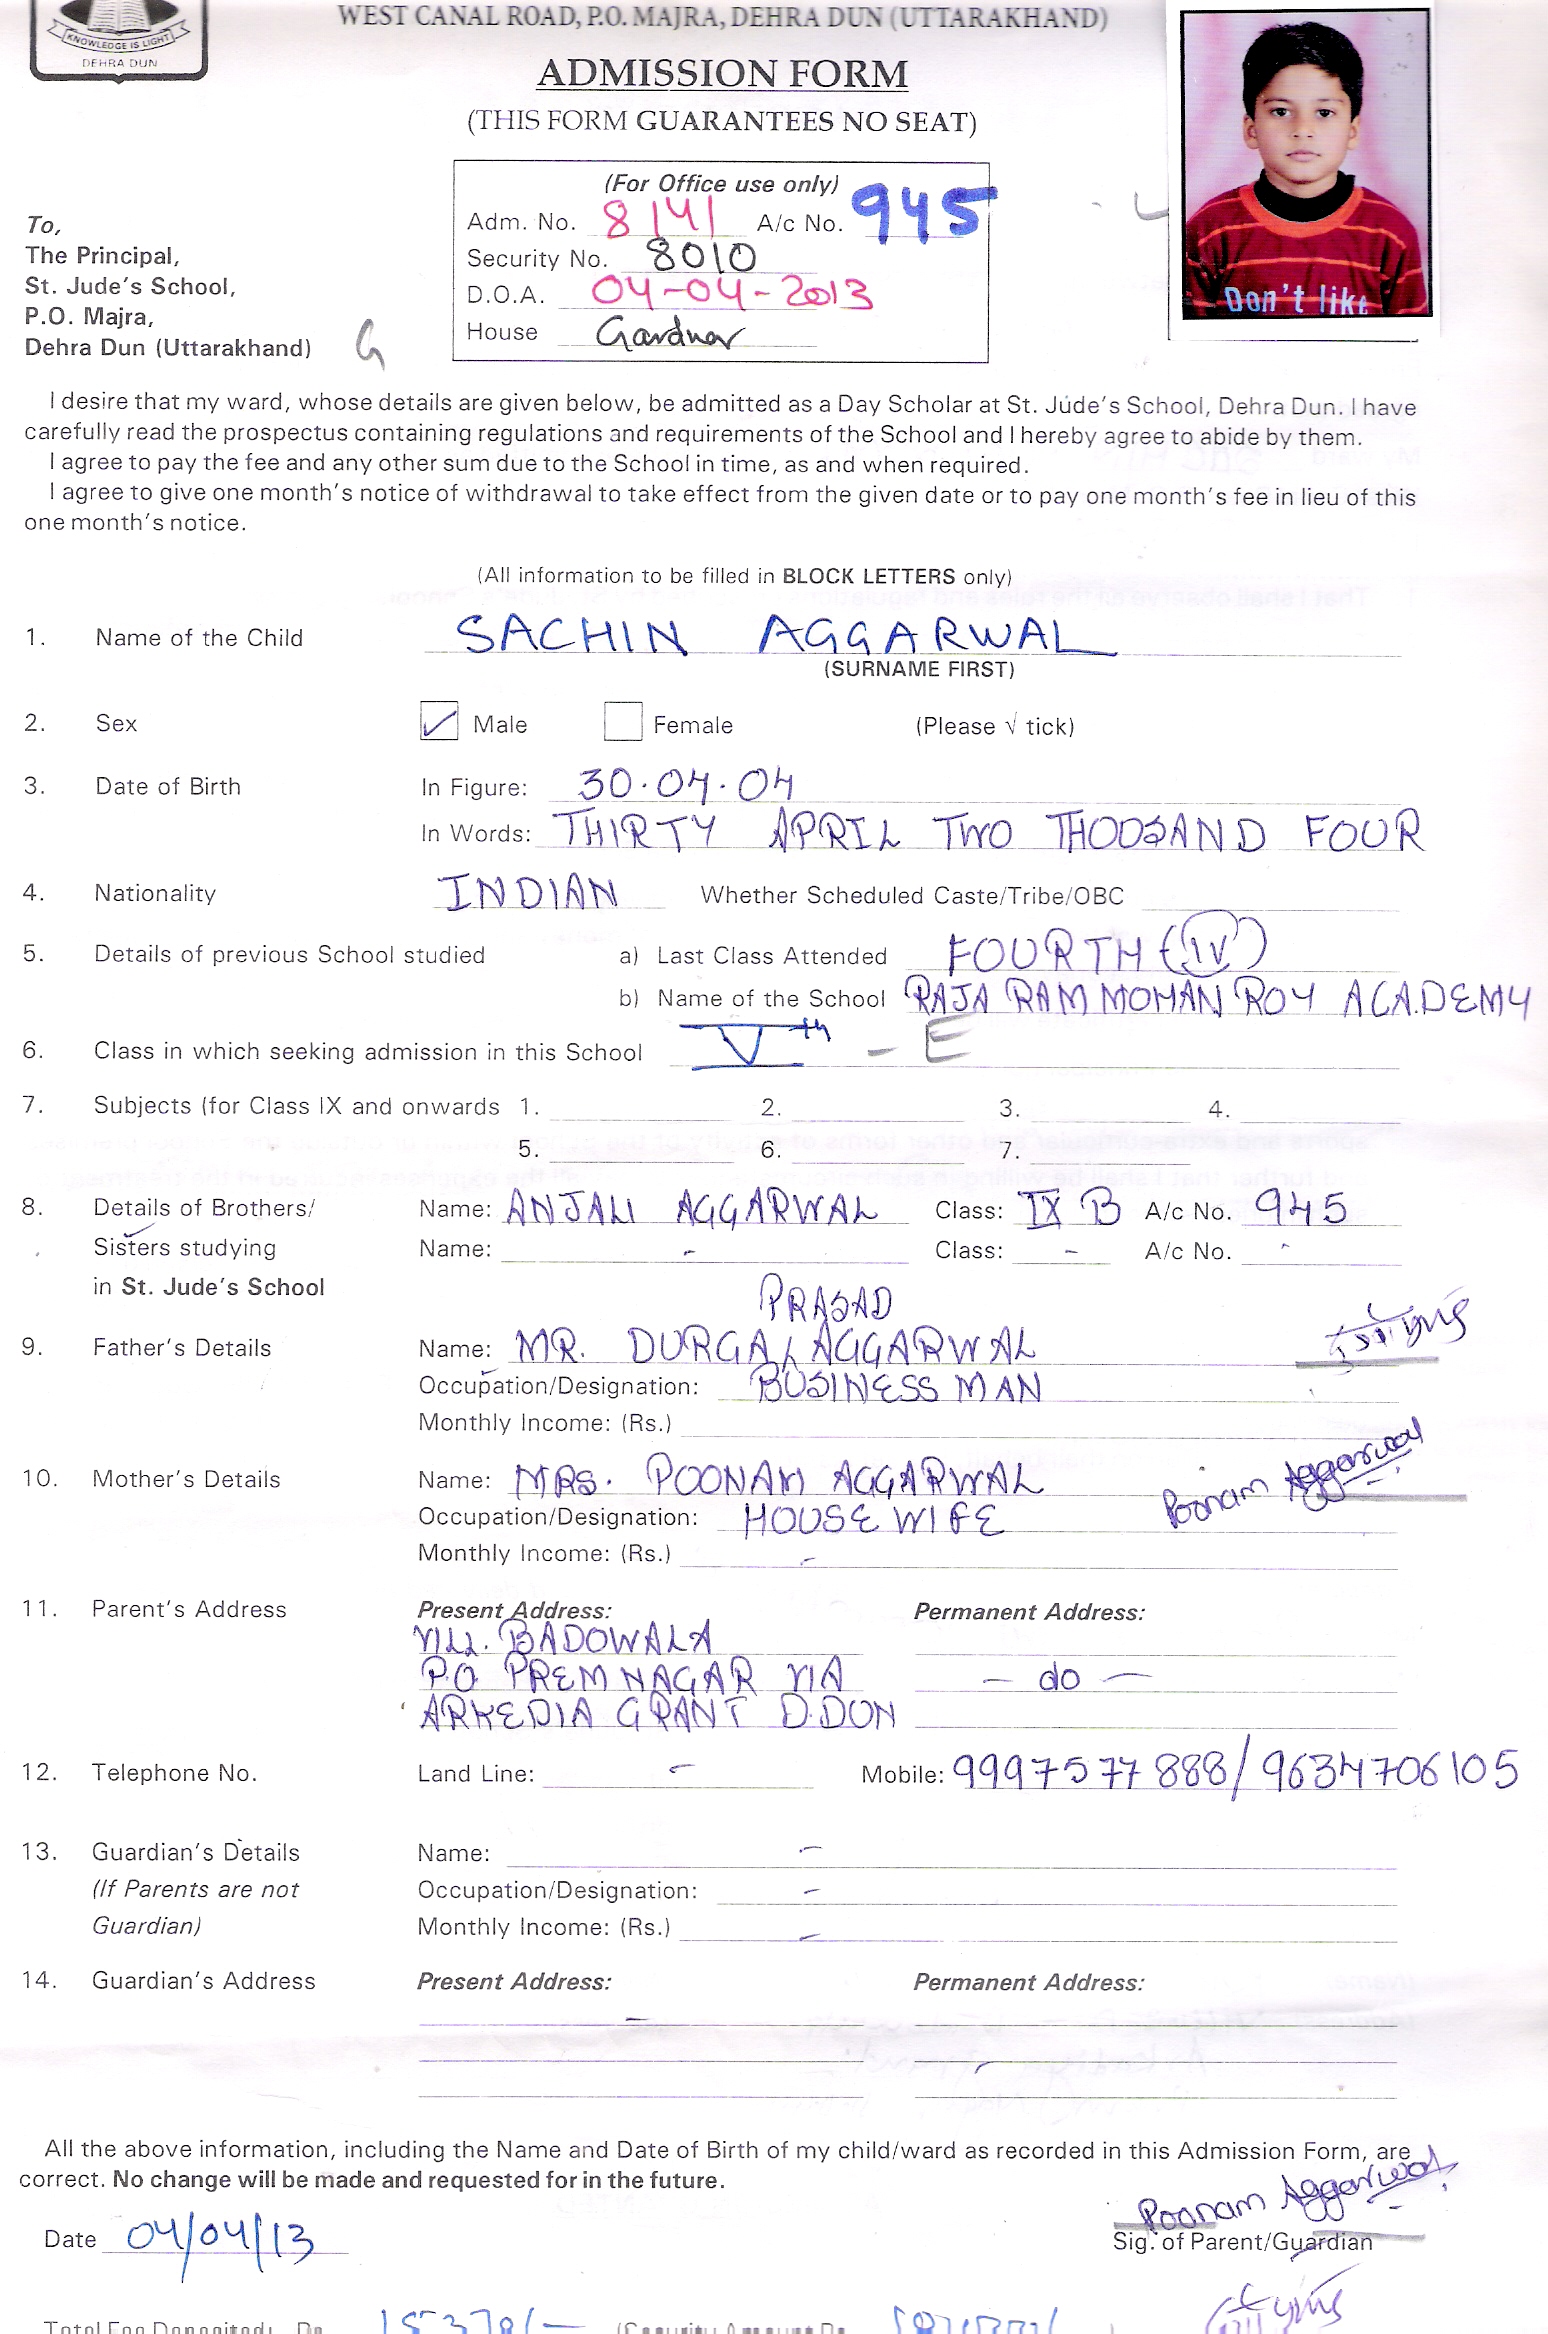 KNOWLEDGE IS LIGHT
DEHRA DUN
WEST CANAL ROAD, P.O. MAJRA, DEHRA DUN (UTTARAKHAND)
ADMISSION FORM
(THIS FORM GUARANTEES NO SEAT)
(For Office use only)
Adm. No. 8141 A/c No. 945
Security No. 8010
D.O.A. 04-04-2013
House Gardner
Don't like
To,
The Principal,
St. Jude's School,
P.O. Majra,
Dehra Dun (Uttarakhand) G
I desire that my ward, whose details are given below, be admitted as a Day Scholar at St. Jude's School, Dehra Dun. I have
carefully read the prospectus containing regulations and requirements of the School and I hereby agree to abide by them.
I agree to pay the fee and any other sum due to the School in time, as and when required.
I agree to give one month's notice of withdrawal to take effect from the given date or to pay one month's fee in lieu of this
one month's notice.
(All information to be filled in BLOCK LETTERS only)
1. Name of the Child SACHIN AGGARWAL
(SURNAME FIRST)
2. Sex Male Female (Please √ tick)
3. Date of Birth In Figure: 30.04.04
In Words: THIRTY APRIL TWO THOUSAND FOUR
4. Nationality INDIAN Whether Scheduled Caste/Tribe/OBC
5. Details of previous School studied a) Last Class Attended FOURTH (IV)
b) Name of the School RAJA RAM MOHAN ROY ACADEMY
6. Class in which seeking admission in this School Vth - E
7. Subjects (for Class IX and onwards 1. 2. 3. 4.
5. 6. 7.
8. Details of Brothers/ Name: ANJALI AGGARWAL Class: IX B A/c No. 945
Sisters studying Name: - Class: - A/c No. -
in St. Jude's School
PRASAD
9. Father's Details Name: MR. DURGA AGGARWAL
Occupation/Designation: BUSINESS MAN
Monthly Income: (Rs.)
10. Mother's Details Name: MRS. POONAM AGGARWAL Poonam Aggarwal
Occupation/Designation: HOUSE WIFE
Monthly Income: (Rs.) -
11. Parent's Address Present Address: Permanent Address:
VILL. BADOWALA
P.O PREM NAGAR VIA - do -
ARKEDIA GRANT D.DUN
12. Telephone No. Land Line: - Mobile: 9997577888/9634706105
13. Guardian's Details Name: -
(If Parents are not Occupation/Designation: -
Guardian) Monthly Income: (Rs.) -
14. Guardian's Address Present Address: Permanent Address:
- -
All the above information, including the Name and Date of Birth of my child/ward as recorded in this Admission Form, are
correct. No change will be made and requested for in the future.
Poonam Aggarwal
Date 04/04/13 Sig. of Parent/Guardian